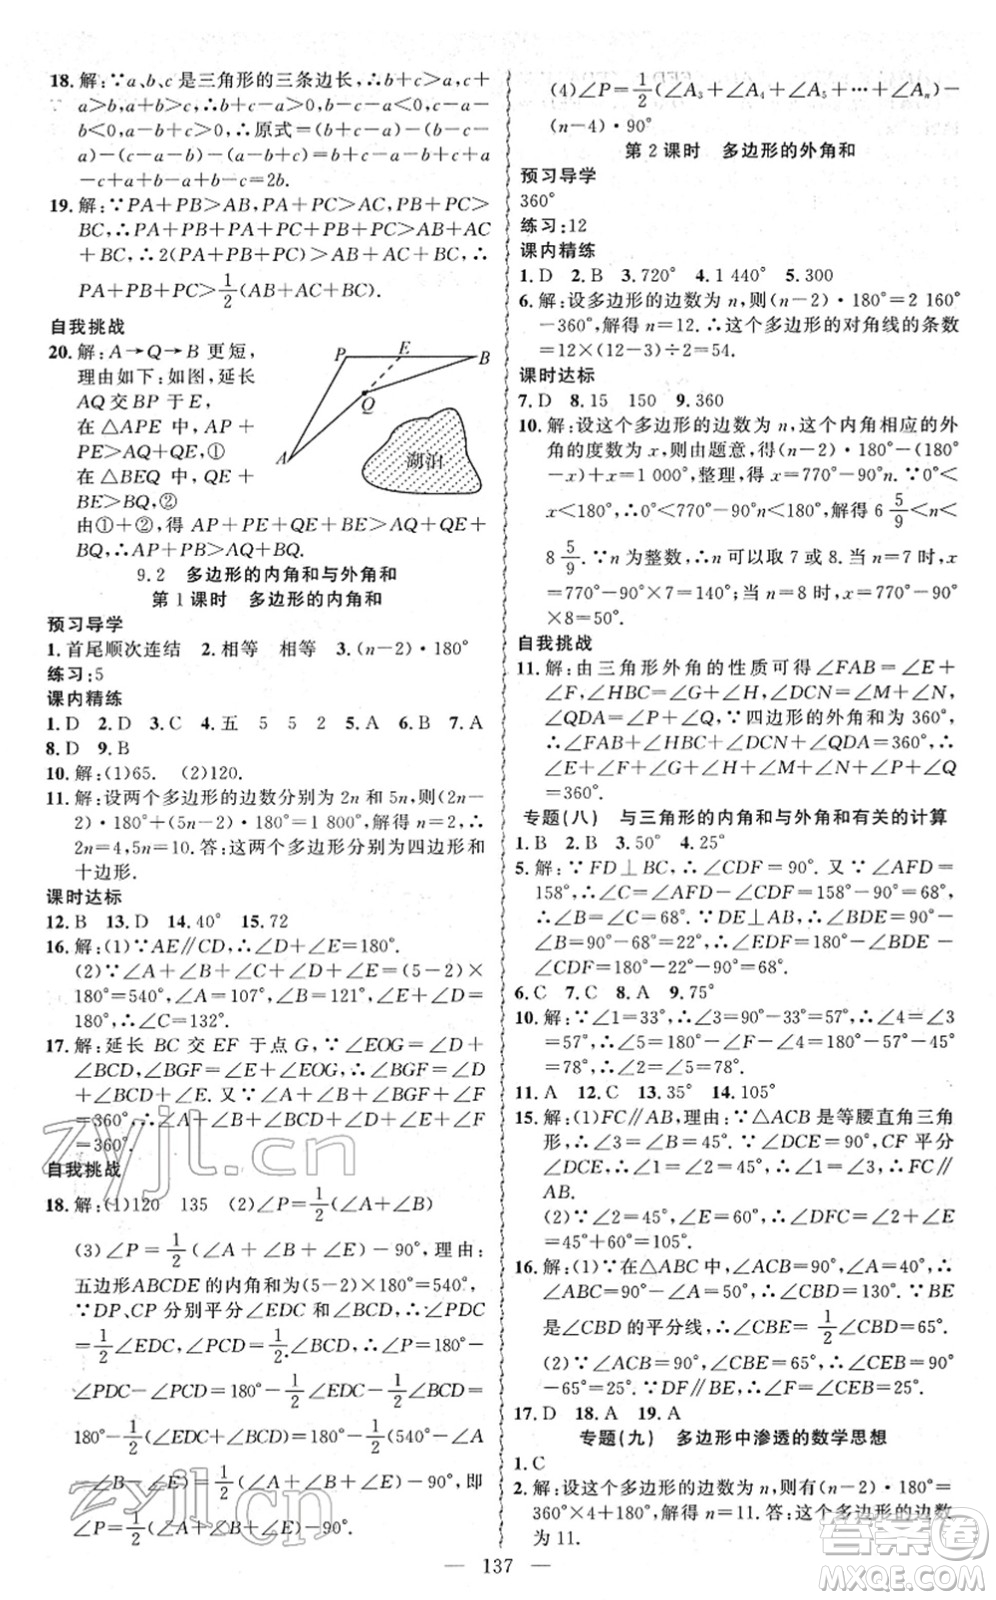 18.解:∵a、b、c是三角形的三条边长,∴b+c>a,c+
a>b,a+b>c,∴b+c-a>0,b-c-a<0,c-a-
b<0,a-b+c>0,∴原式=(b+c-a)-(b-c-
a)-(c-a-b)-(a-b+c)=b+c-a-b+c+a-
c+a+b-a+b-c=2b.
19.解:∵PA+PB>AB,PA+PC>AC,PB+PC>
BC,∴PA+PB+PA+PC+PB+PC>AB+AC
+BC,∴2(PA+PB+PC)>AB+AC+BC,∴
PA+PB+PC>1/2(AB+AC+BC).
自我挑战
20.解:A→Q→B更短,
理由如下:如图,延长
AQ交BP于E,
在△APE中,AP+
PE>AQ+QE,①
在△BEQ中,QE+
BE>BQ,②
P E B
Q
A
湖泊
由①+②,得AP+PE+QE+BE>AQ+QE+
BQ,∴AP+PB>AQ+BQ.
9.2 多边形的内角和与外角和
第1课时 多边形的内角和
预习导学
1.首尾顺次连结 2.相等 相等 3.(n-2)·180°
练习:5
课内精练
1.D 2.D 3.C 4.五 5 5 2 5.A 6.B 7.A
8.D 9.B
10.解:(1)65. (2)120.
11.解:设两个多边形的边数分别为2n和5n,则(2n-
2)·180°+(5n-2)·180°=1 800°,解得n=2.∴
2n=4,5n=10.答:这两个多边形分别为四边形和
十边形.
课时达标
12.B 13.D 14.40° 15.72
16.解:(1)∵AE∥CD,∴∠D+∠E=180°.
(2)∵∠A+∠B+∠C+∠D+∠E=(5-2)×
180°=540°,∠A=107°,∠B=121°,∠E+∠D=
180°,∴∠C=132°.
17.解:延长BC交EF于点G,∵∠EOG=∠D+
∠BCD,∠BGF=∠E+∠EOG,∴∠BGF=∠D+
∠BCD+∠E.又∵∠A+∠B+∠BGF+∠F
=360°,∴∠A+∠B+∠BCD+∠D+∠E+∠F
=360°.
自我挑战
18.解:(1)120 135 (2)∠P=1/2(∠A+∠B)
(3)∠P=1/2(∠A+∠B+∠E)-90°,理由:
五边形ABCDE的内角和为(5-2)×180°=540°,
∵DP、CP分别平分∠EDC和∠BCD,∴∠PDC
=1/2∠EDC,∠PCD=1/2∠BCD,∴∠P=180°-
∠PDC-∠PCD=180°-1/2∠EDC-1/2∠BCD=
180°-1/2(∠EDC+∠BCD)=180°-1/2(540°-
∠A-∠B-∠E)=1/2(∠A+∠B+∠E)-90°,即
∠P=1/2(∠A+∠B+∠E)-90°.
(4)∠P=1/2(∠A₃+∠A₄+∠A₅+…+∠Aₙ)-
(n-4)·90°
第2课时 多边形的外角和
预习导学
360°
练习:12
课内精练
1.D 2.B 3.720° 4.1 440° 5.300
6.解:设多边形的边数为n,则(n-2)·180°=2 160°
-360°,解得n=12.∴这个多边形的对角线的条数
=12×(12-3)÷2=54.
课时达标
7.D 8.15 150 9.360
10.解:设这个多边形的边数为n,这个内角相应的外
角的度数为x,则由题意,得(n-2)·180°-(180°
-x)+x=1 000°,整理,得x=770°-90°n.∵0°<
x<180°,∴0°<770°-90°n<180°,解得6 5/9<n<
8 5/9.∵n为整数,∴n可以取7或8.当n=7时,x
=770°-90°×7=140°;当n=8时,x=770°-90°
×8=50°.
自我挑战
11.解:由三角形外角的性质可得∠FAB=∠E+
∠F,∠HBC=∠G+∠H,∠DCN=∠M+∠N,
∠QDA=∠P+∠Q,∵四边形的外角和为360°,
∴∠FAB+∠HBC+∠DCN+∠QDA=360°,∴
∠E+∠F+∠G+∠H+∠M+∠N+∠P+∠Q=
360°.
专题(八) 与三角形的内角和与外角和有关的计算
1.B 2.B 3.50° 4.25°
5.解:∵FD⊥BC,∴∠CDF=90°.又∵∠AFD=
158°,∴∠C=∠AFD-∠CDF=158°-90°=68°,
∴∠B=∠C=68°.∵DE⊥AB,∴∠BDE=90°-
∠B=90°-68°=22°,∴∠EDF=180°-∠BDE-
∠CDF=180°-22°-90°=68°.
6.C 7.C 8.A 9.75°
10.解:∵∠1=33°,∴∠3=90°-33°=57°,∴∠4=∠3
=57°,∴∠5=180°-∠F-∠4=180°-45°-57°=
78°,∴∠2=∠5=78°.
11.A 12.C 13.35° 14.105°
15.解:(1)FC∥AB,理由:∵△ACB是等腰直角三角
形,∴∠3=45°.∵∠DCE=90°,CF平分
∠DCE,∴∠1=∠2=45°,∴∠1=∠3,∴FC∥
AB.
(2)∵∠2=45°,∠E=60°,∴∠DFC=45°+60°
=105°.
16.解:(1)∵在△ABC中,∠ACB=90°,∠A=40°,∴
∠ABC=90°-∠A=50°,∴∠CBD=130°.∵BE
是∠CBD的平分线,∴∠CBE=1/2∠CBD=65°.
(2)∵∠ACB=90°,∠CBE=65°,∴∠CEB=90°
-65°=25°.∵DF∥BE,∴∠F=∠CEB=25°.
17.D 18.A 19.A
专题(九) 多边形中渗透的数学思想
1.C
2.解:设这个多边形的边数为n,则有(n-2)·180°=
360°×4+180°,解得n=11.答:这个多边形的边数
为11.
— 137 —
zyjl.cn
zyjl.cn
答案圈
MXQE.COM